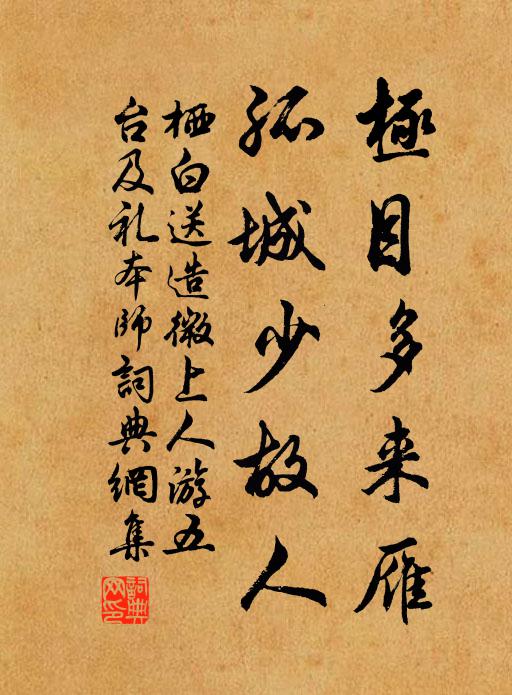 極目多来雁
孤城少故人
栖白送造微上人游五
台及礼本师詞典網集
詞典
网印